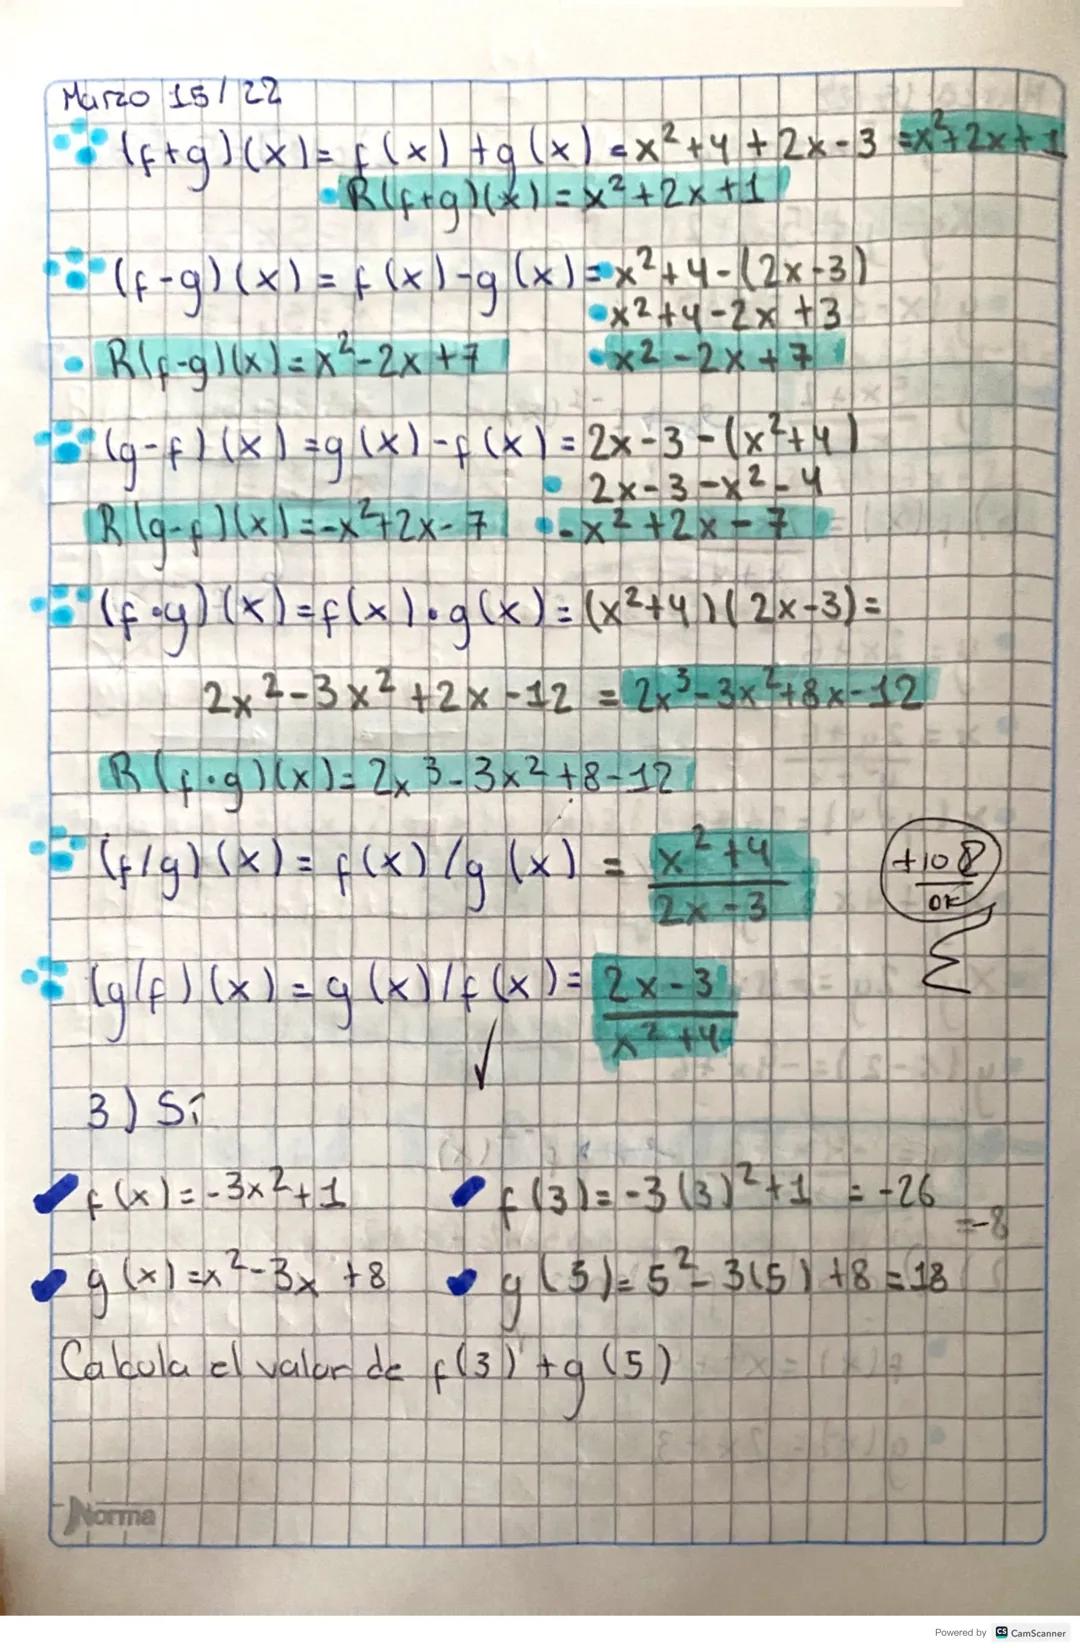 Marzo 15/22
(f+g)(x)= f(x)+g(x) = x²+4+2x-3 =x²+2x+1
R(f+g)(x)=x²+2x+1
(f-g)(x)= f(x)-g(x)= x²+4-(2x-3)
x²+4-2x+3
R(f-g)(x)=x²-2x+7 x²-2x+7
(g-f)(x)=g(x)-f(x)= 2x-3-(x²+4)
2x-3-x²-4
R(g-f)(x)=-x²+2x-7 -x²+2x-7
(f·g)(x)=f(x)·g(x)=(x²+4)(2x-3)=
2x²-3x²+2x-12 = 2x³-3x²+8x-12
R(f·g)(x)= 2x³-3x²+8-12
(f/g)(x)= f(x)/g(x) = x²+4
2x-3
+10
OK
(g/f)(x)=g(x)/f(x)= 2x-3
x²+4
3) Si
f(x)=-3x²+1 f(3)=-3(3)²+1 = -26
=-8
g(x)=x²-3x+8 g(5)=5²-3(5)+8=18
Calcula el valor de f(3)+g(5)
Norma
Powered by CS CamScanner